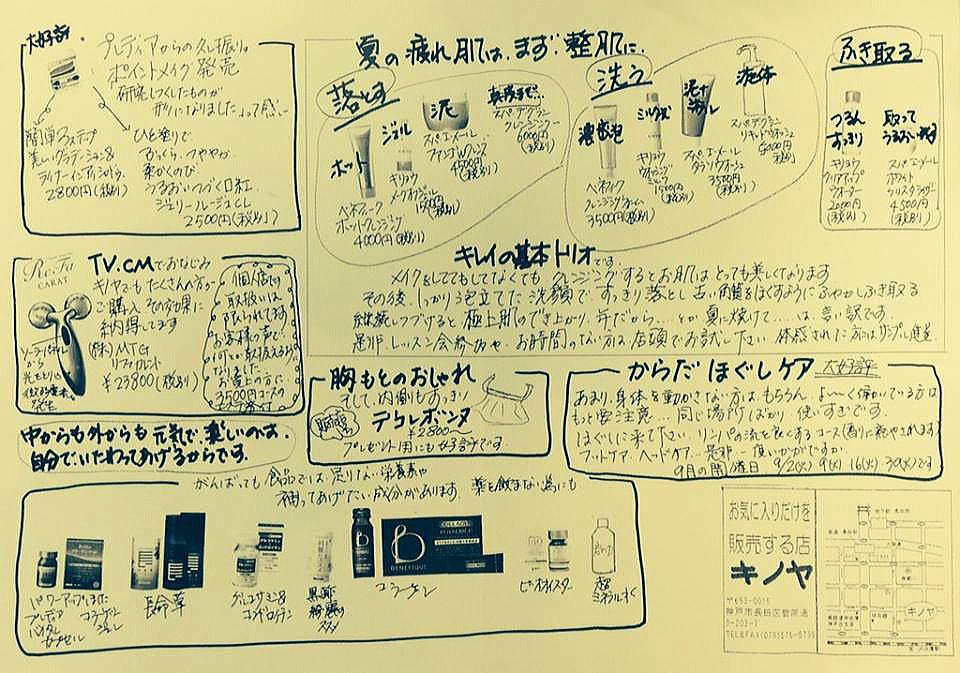 大好評
プレディアからの久し振り。
ポイントメイク発売
研究しつくしたものが
形になりましたョって感じ
簡単3ステップ
美しいグラデーション&
2800円(税別)
ひと塗りで、
ふっくら、つややか
柔かくのび、
うるおいつづく口紅
ジェリールージュくん
2500円(税別)
夏の疲れ肌は、まず整肌に、
落とす
ホット
ベネフィーク
ホットクレンジング
4000円(税別)
ジェル
キリョウ
1500円
(税別)
泥
スパエメール
4500円
(税別)
スパデグラシー
クレンジングフォー
6000円
(税別)
洗う
濃密泡
ベネフィーク
クレンジングフォーム
3500円(税別)
ミルク状
キリョウ
ウオッシング
1500円
(税別)
スパエメール
タラソウオッシュ
3500円
(税別)
液体
スパデグラシー
リキッドウオッシュ
5000円
税別
ふき取る
つるん
すっきり
キリョウ
クリアアップ
ウオーター
2000円
(税別)
取って
スパエメール
ホワイト
クリスタライザー
4500円
(税別)
キレイの基本トリオです。
メイクをしててもしてなくても クレンジングするとお肌はとっても美しくなります
その後、しっかり泡立てた洗顔で、すっきり落とし 古い角質をほぐすようにふやかしふき取る
継続しつづけると極上肌のでき上がり、年だから……とか夏に焼けて……は、言い訳です。
是非、レッスン会参加や、お時間のない方は店頭でお試し下さい 体感された方はサンプル進呈
ReFa
CARAT
TV.CMでおなじみ
キノヤでもたくさんの方が
ご購入 その効果に
納得してます
(株)MTG
リファカラット
¥23800(税別)
ソーラーパネル
から
光をとりこみ
微弱電流
発生
個人店で
取扱いは
限られてます
お客様の声で
何とか取扱えるように
なりました
お買上の方に
3500円コースの
胸もとのおしゃれ
そして、内側もすっきり
デコレボンヌ
¥2800〜
プレゼント用にも好評です。
からだほぐしケア 大好評
あまり、身体を動かさない方は、もちろん、よ〜く働いている方は
もっと要注意……同じ場所ばかり、使いすぎです。
ほぐしに来て下さい リンパの流れを良くするコース(香りに癒やされます)
フットケア、ヘッドケア…是非、一度いかがですか
9月の開催日 9/2(火) 9(火) 16(火) 30(火)です
中からも外からも元気で、楽しいのは、
自分でいたわってあげるからです。
がんばっても食品では、足りない栄養素や
補ってあげたい成分があります。薬を飲まない為にも
パワーアップしました
プレディア
バイタル
カプセル
コラーゲン
ジュレ
長命草
グルコサミン&
コンドロイチン
COLLAGEN
ROYALRICH
BENEFIQUE
コラーゲン
ビューティオスター
お気に入りだけを
販売する店
キノヤ
〒653-0015
神戸市長田区菅原通
3-203-1
TEL&FAX(078)575-5739
キノヤ